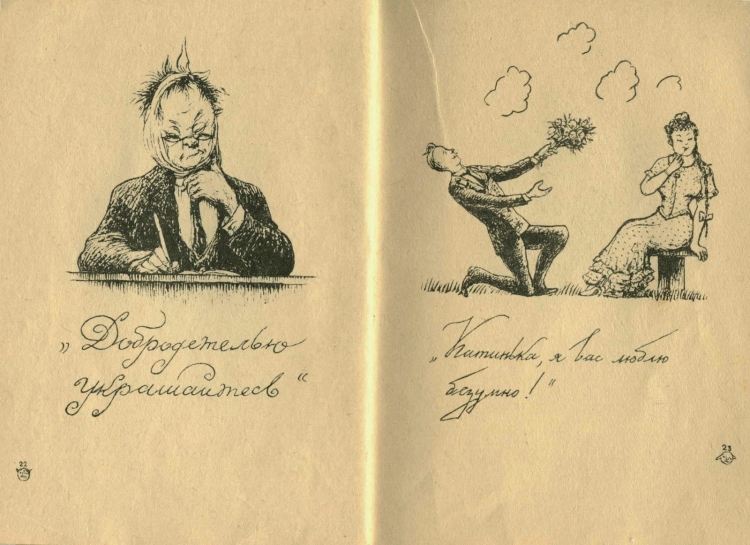 „Добродетелью
украшайтесь“
22
„Катинька, я вас люблю
безумно!“
23